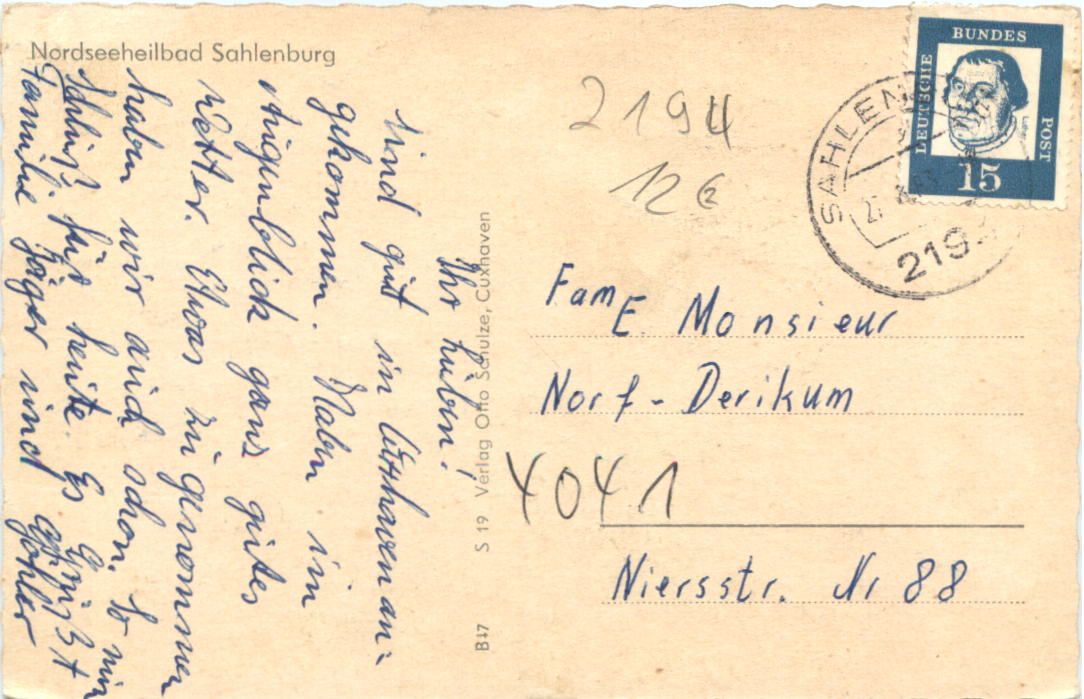 Nordseeheilbad Sahlenburg
Ihr lieben!
sind gut in Cuxhaven an-
gekommen. Haben im
Augenblick ganz gutes
Wetter. Etwas zugenommen
haben wir auch schon. So nun
Schluß für heute. Es Grüßt
Familie Jäger und
S 19 Verlag Otto Schulze, Cuxhaven
B47
2194
12€
DEUTSCHE
BUNDES
POST
Luther
15
SAHLEN
219
Fam E. Monsieur
Norf - Derikum
4041
Niersstr. Nr 88